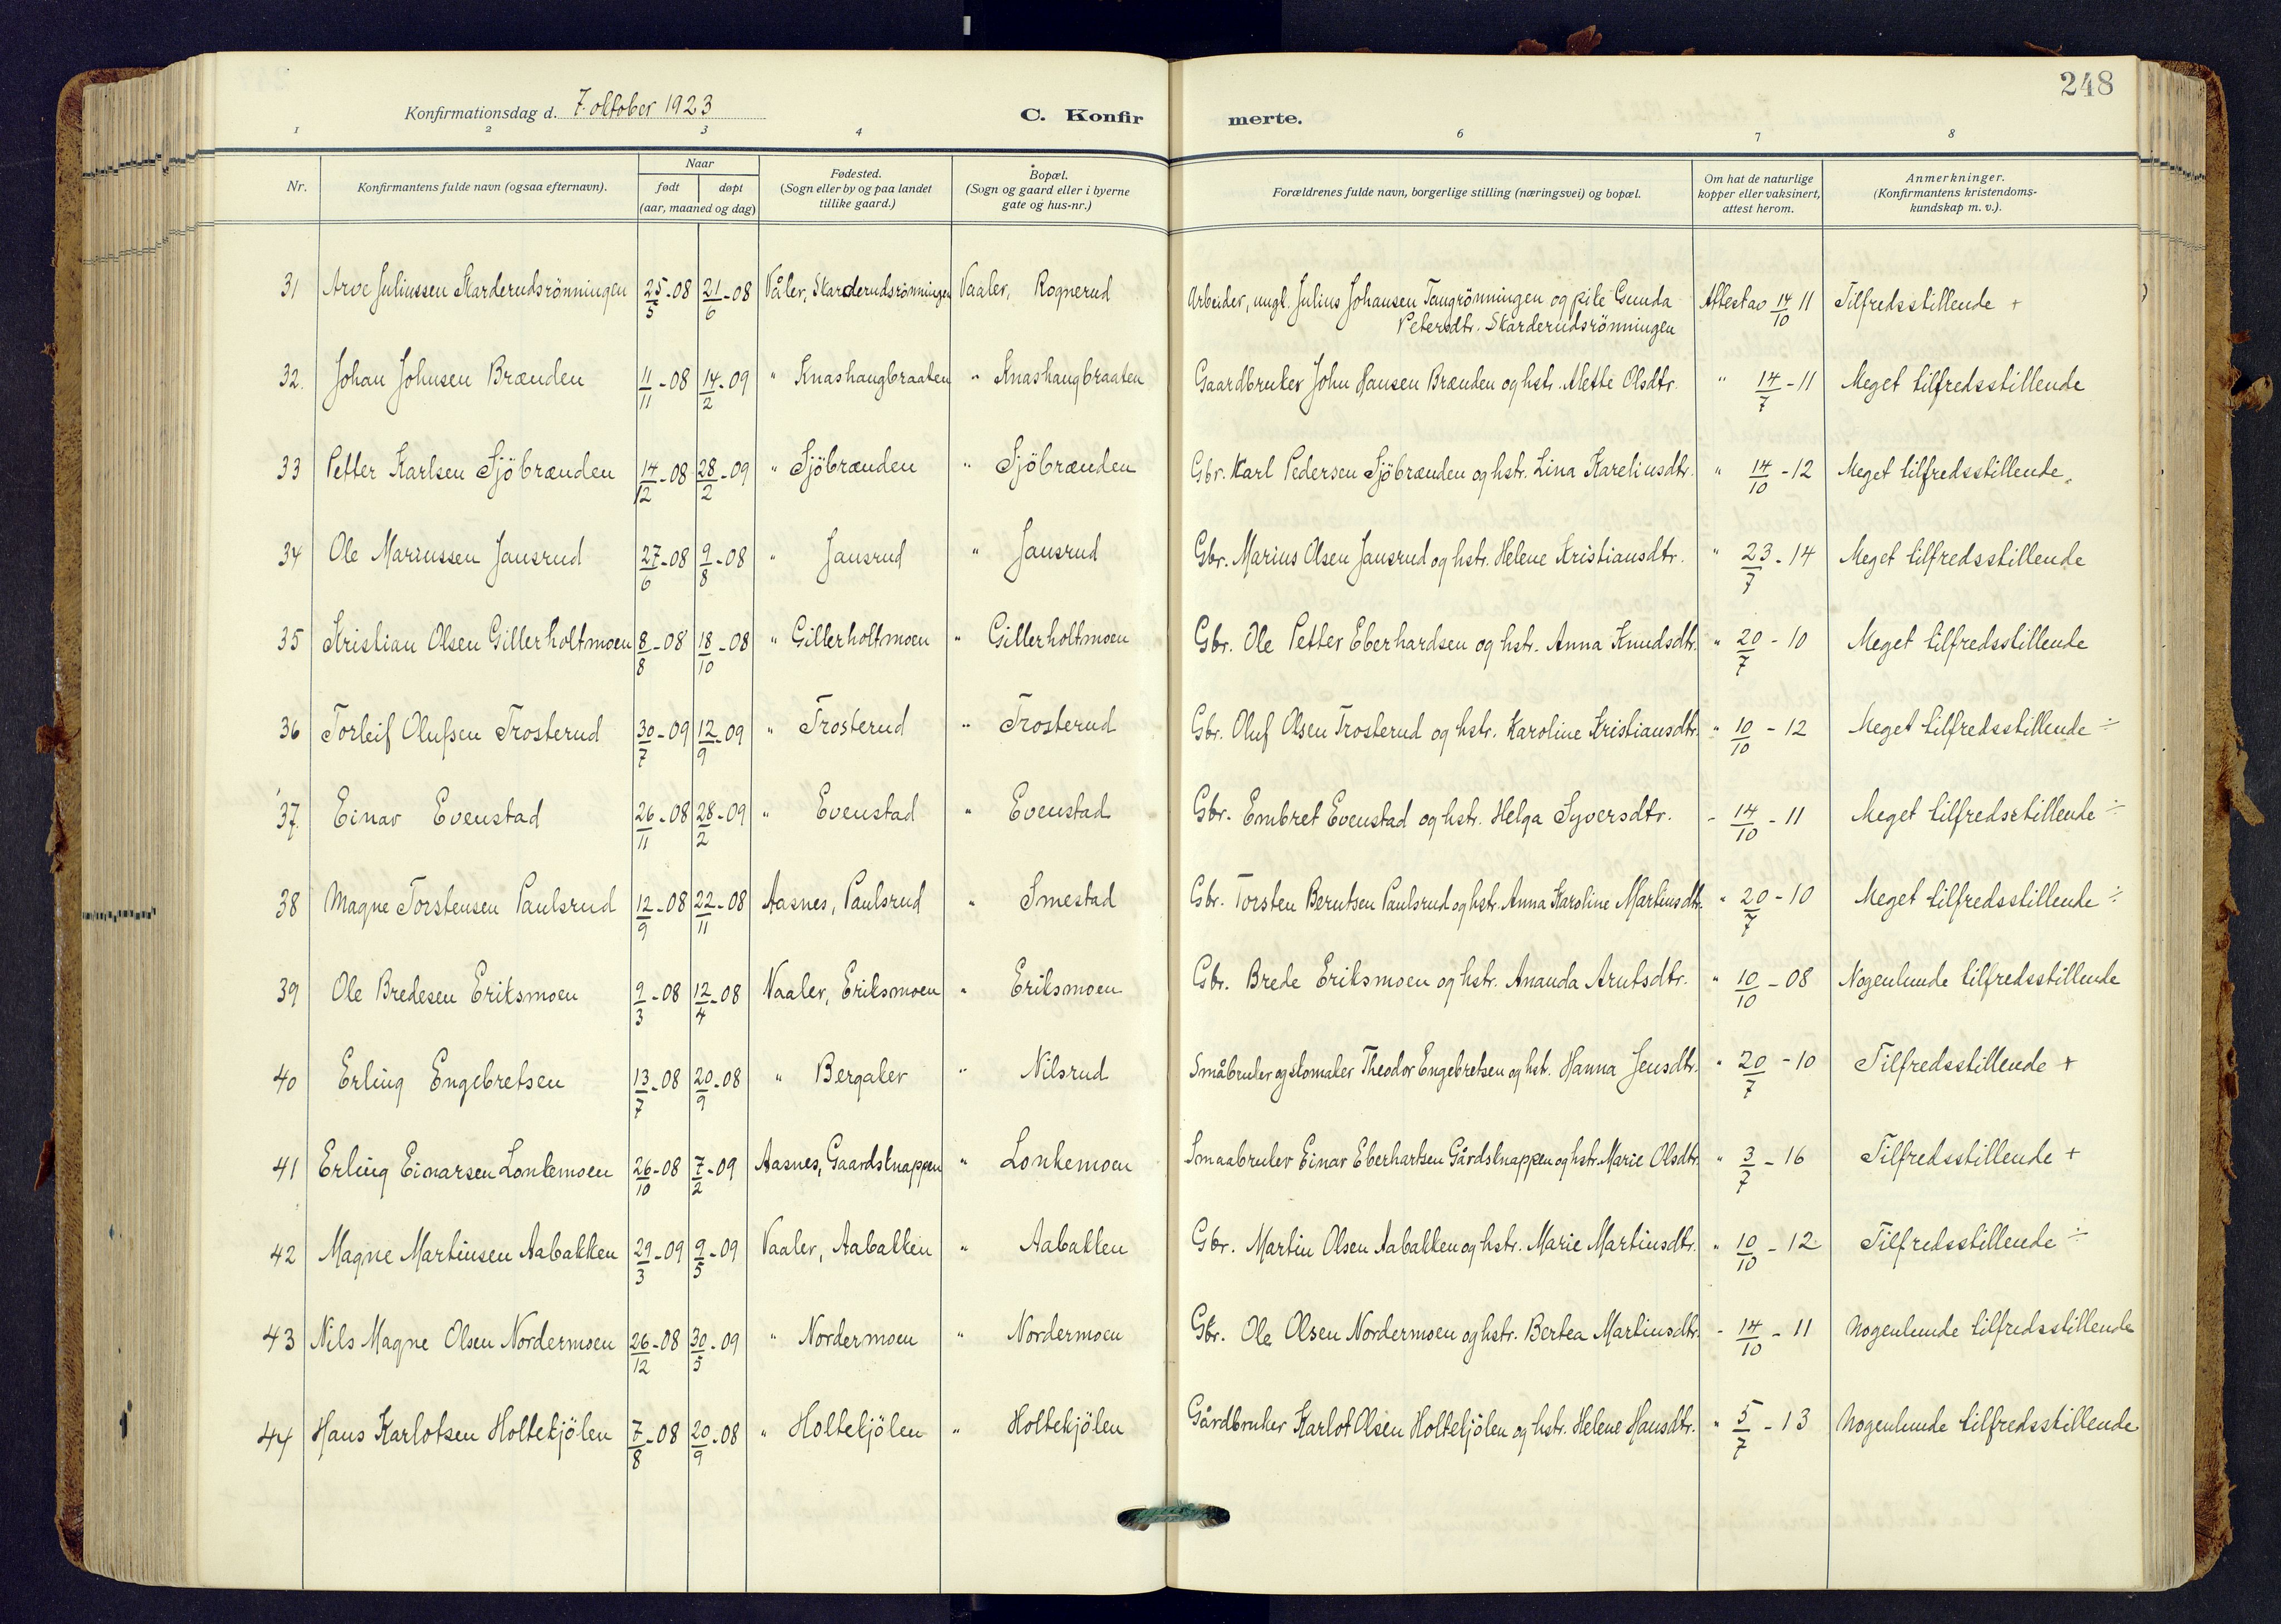 248
Konfirmationsdag d. 7. oktober 1923
C. Konfirmerte.
1 2 3 4 6 7 8
Nr. | Konfirmantens fulde navn (ogsaa efternavn). | Naar født døpt (aar, maaned og dag) | Fødested. (Sogn eller by og paa landet tillike gaard.) | Bopæl. (Sogn og gaard eller i byerne gate og hus-nr.) | Forældrenes fulde navn, borgerlige stilling (næringsvei) og bopæl. | Om hat de naturlige kopper eller vaksinert, attest herom. | Anmerkninger. (Konfirmantens kristendomskundskap m. v.).
31 | Arve Juliussen Skarderudsrönningen | 25/5-08 | 21/6-08 | Våler, Skarderudsrönningen | Vaaler, Rognerud | Arbeider, ungk. Julius Johansen Taugrönningen og pike Gunda Petersdtr. Skarderudsrönningen | Attest av 14/10 11 | Tilfredsstillende +
32. | Johan Johnsen Brænden | 11/11-08 | 14/2-09 | " Knashaugbraaten | " Knashaugbraaten | Gaardbruker John Hansen Brænden og hstr. Mette Olsdtr. | " 14/7-11 | Meget tilfredsstillende
33 | Petter Karlsen Sjöbrænden | 14/12-08 | 28/2-09 | " Sjöbrænden | " Sjöbrænden | Gbr. Karl Pedersen Sjöbrænden og hstr. Lina Kareliusdtr. | " 14/10-12 | Meget tilfredsstillende.
34 | Ole Mariussen Jansrud | 27/6-08 | 9/8-08 | " Jansrud | " Jansrud | Gbr. Marius Olsen Jansrud og hstr. Helene Kristiansdtr. | " 23/7-14 | Meget tilfredsstillende
35 | Kristian Olsen Gillerholtmoen | 8/8-08 | 18/10-08 | " Gillerholtmoen | " Gillerholtmoen | Gbr. Ole Petter Eberhardsen og hstr. Anna Knudsdtr. | " 20/7-10 | Meget tilfredsstillende
36 | Torleif Olufsen Trosterud | 30/7-09 | 12/9-09 | " Trosterud | " Trosterud | Gbr. Oluf Olsen Trosterud og hstr. Karoline Kristiansdtr. | " 10/10-12 | Meget tilfredsstillende ÷
37. | Einar Evenstad | 26/11-08 | 28/2-09 | " Evenstad | " Evenstad | Gbr. Embret Evenstad og hstr. Helga Syversdtr. | " 14/10-11 | Meget tilfredsstillende ÷
38 | Magne Torstensen Paulsrud | 12/9-08 | 22/11-08 | Aasnes, Paulsrud | " Smestad | Gbr. Torsten Berntsen Paulsrud og hstr. Anna Karoline Martinsdtr. | " 20/7-10 | Meget tilfredsstillende ÷
39 | Ole Bredesen Eriksmoen | 9/3-08 | 12/4-08 | Vaaler, Eriksmoen | " Eriksmoen | Gbr. Brede Eriksmoen og hstr. Ananda Arntsdtr. | " 10/10-08 | Nogenlunde tilfredsstillende
40 | Erling Engebretsen | 13/7-08 | 20/9-08 | " Bergaker | " Nilsrud | Småbruker og skomaker Theodor Engebretsen og hst. Hanna Jensdtr. | " 20/7-10 | Tilfredsstillende +
41 | Erling Einarsen Lonkemoen | 26/10-08 | 7/2-09 | Aasnes, Gaardsknappen | " Lonkemoen | Smaabruker Einar Eberhartsen Gårdsknappen og hstr. Marie Olsdtr. | " 3/7-16 | Tilfredsstillende +
42 | Magne Martinsen Aabakken | 29/3-09 | 9/5-09 | Vaaler, Aabakken | " Aabakken | Gbr. Martin Olsen Aabakken og hstr. Marie Martinsdtr. | " 10/10-12 | Tilfredsstillende ÷
43 | Nils Magne Olsen Nordermoen | 26/12-08 | 30/5-09 | " Nordermoen | " Nordermoen | Gbr. Ole Olsen Nordermoen og hstr. Bertea Martinsdtr. | " 14/10-11 | Nogenlunde tilfredsstillende
44 | Hans Karlotsen Holtekjölen | 7/8-08 | 20/9-08 | " Holtekjölen | " Holtekjölen | Gårdbruker Karlot Olsen Holtekjölen og hstr. Helene Hansdtr. | " 5/7-13 | Nogenlunde tilfredsstillende